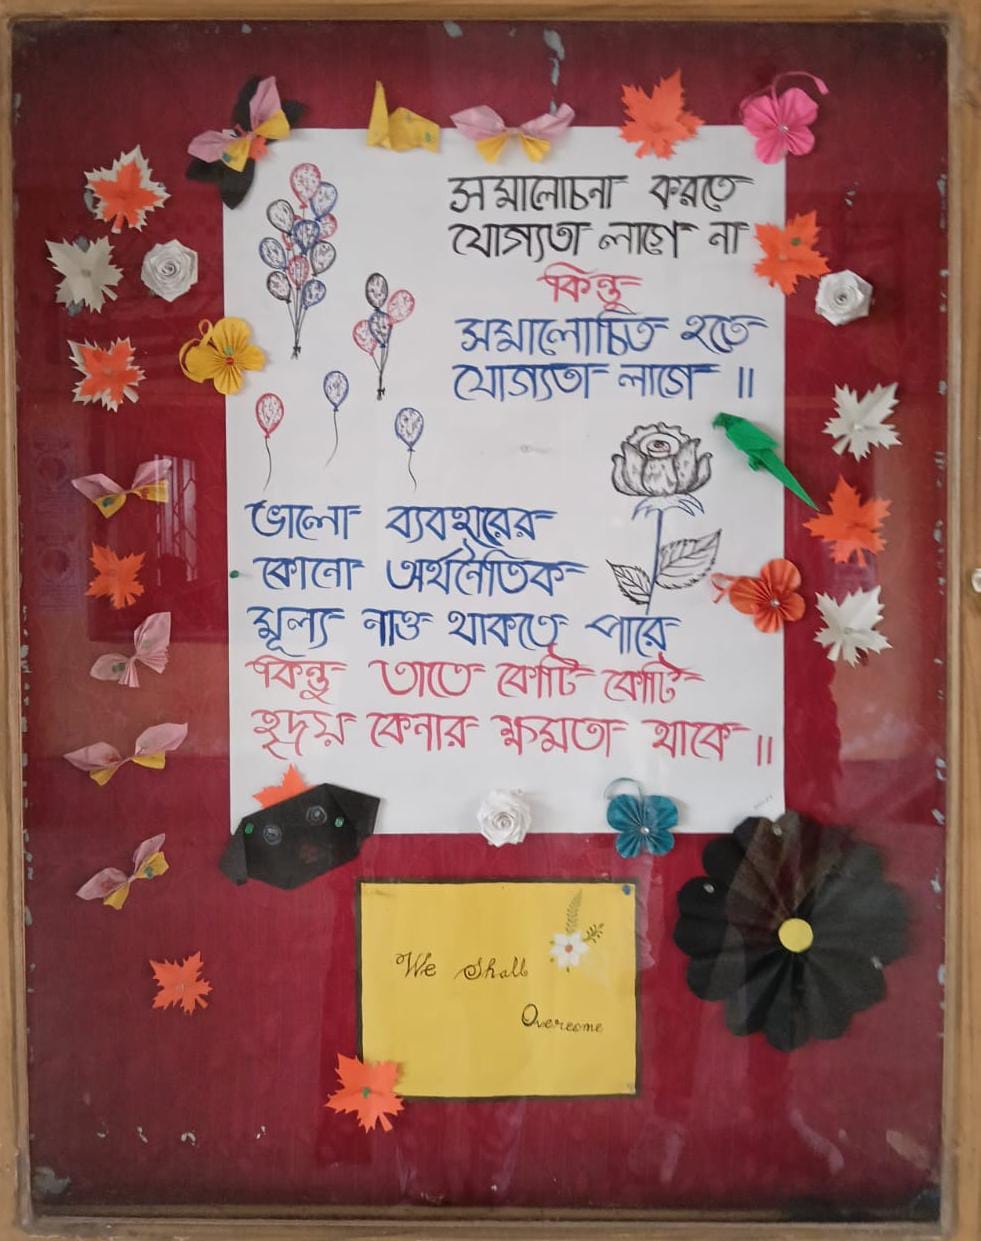 সমালোচনা করতে
যোগ্যতা লাগে না
কিন্তু
সমালোচিত হতে
যোগ্যতা লাগে ॥
ভালো ব্যবহারের
কোনো অর্থনৈতিক
মূল্য নাও থাকতে পারে
কিন্তু তাতে কোটি কোটি
হৃদয় কেনার ক্ষমতা থাকে ॥
We Shall
Overcome